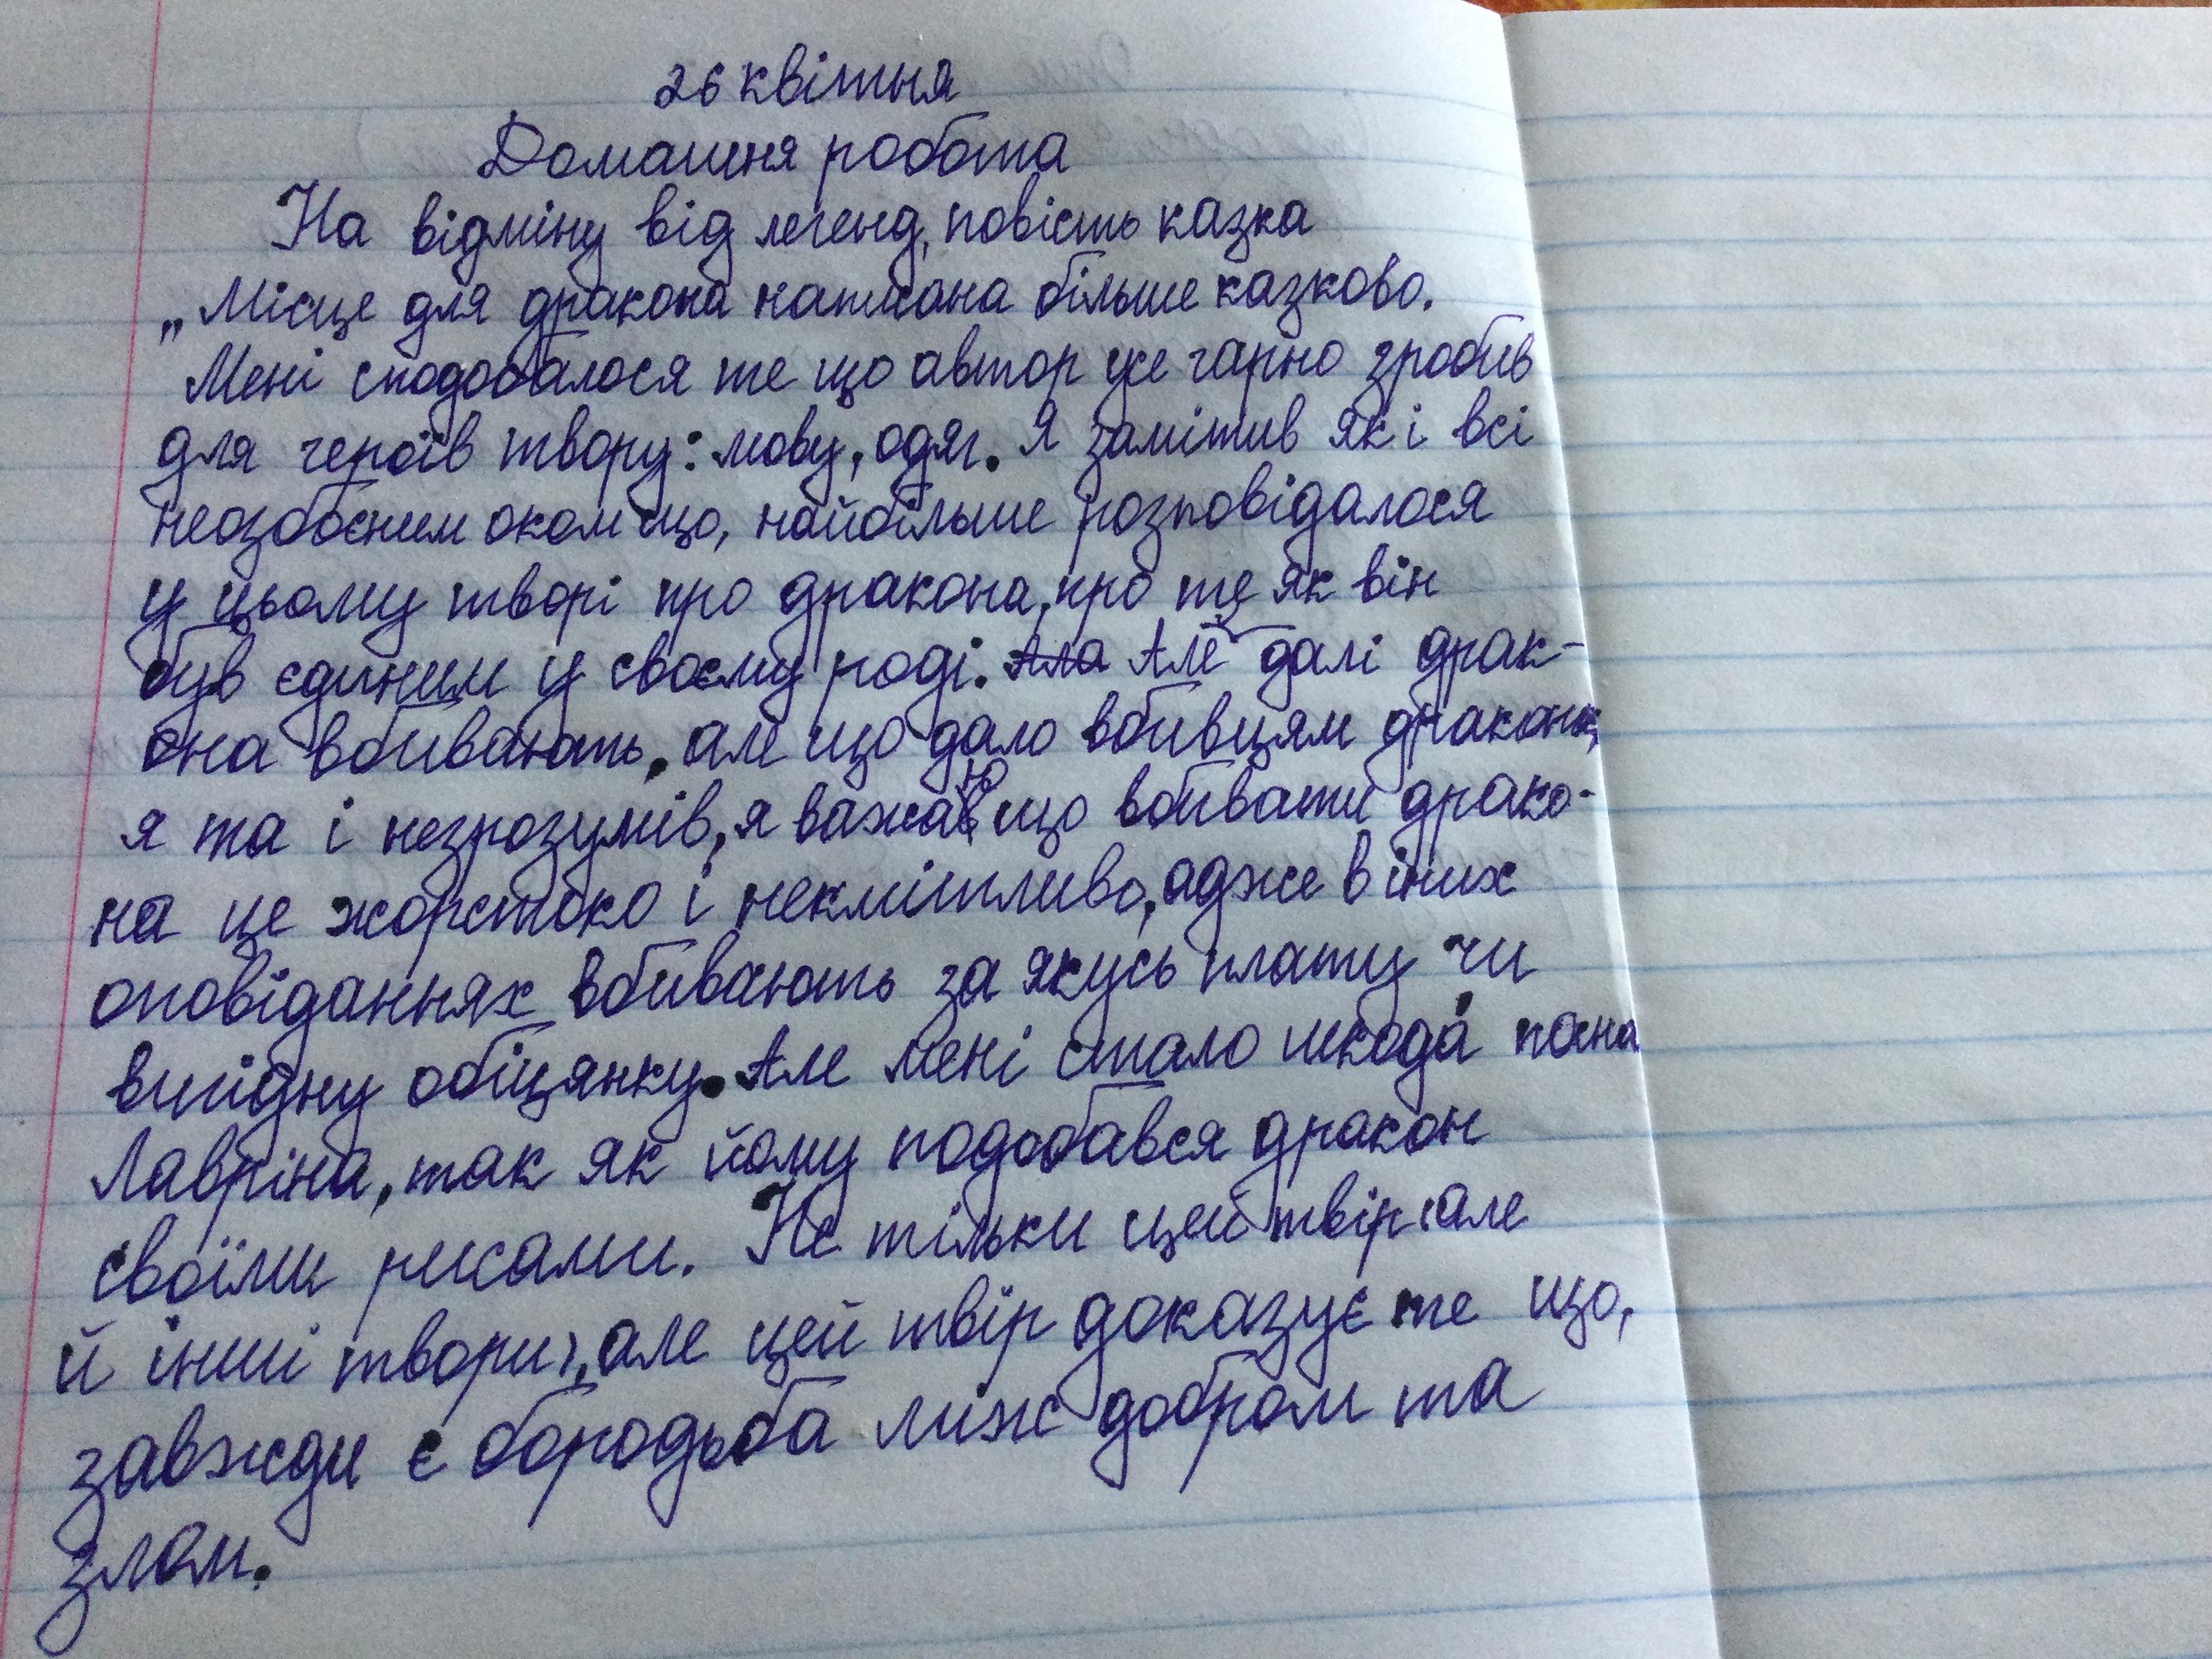 26 квітня
Домашня робота
На відміну від легенд, повість казка
„Місце для дракона написана більше казково.
Мені сподобалося те що автор уже гарно зробив
для героїв твору: мову, одяг. Я замітив як і всі
неозбоєним оком що, найбільше розповідалося
у цьому творі про дракона, про те як він
був єдиним у своєму роді. Ала Але далі драк-
она вбивають, але що дало вбивцям дракона,
я та і незрозумів, я важаю що вбивати драко-
на це жорстоко і некмітливо, адже в іних
оповіданнях вбивають за якусь плату чи
вигідну обіцянку. Але мені стало шкода пана
Лавріна, так як йому подобався дракон
своїми рисами. Не тільки цей твір але
й інші твори, але цей твір доказує те що,
завжди є бородьба між добром та
злом.